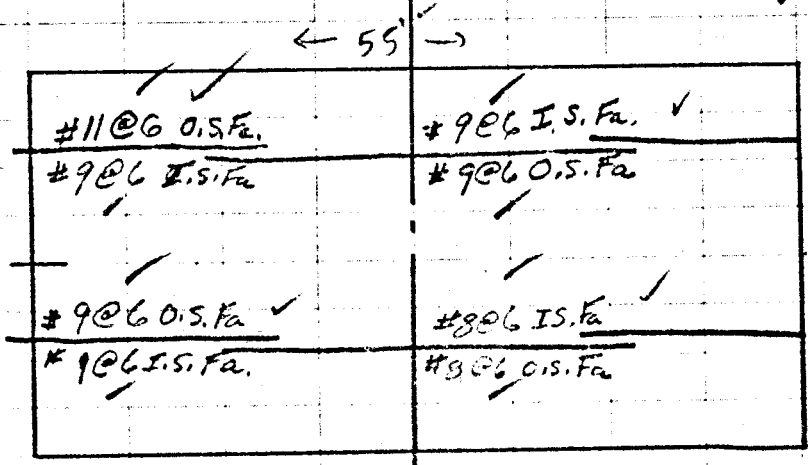 ← 55' →
#11@6 O.S.Fa.
#9@6 I.S.Fa
#9@6 I.S.Fa.
#9@6 O.S.Fa
#9@6 O.S.Fa
#9@6 I.S.Fa.
#8@6 IS.Fa
#8@6 O.S.Fa